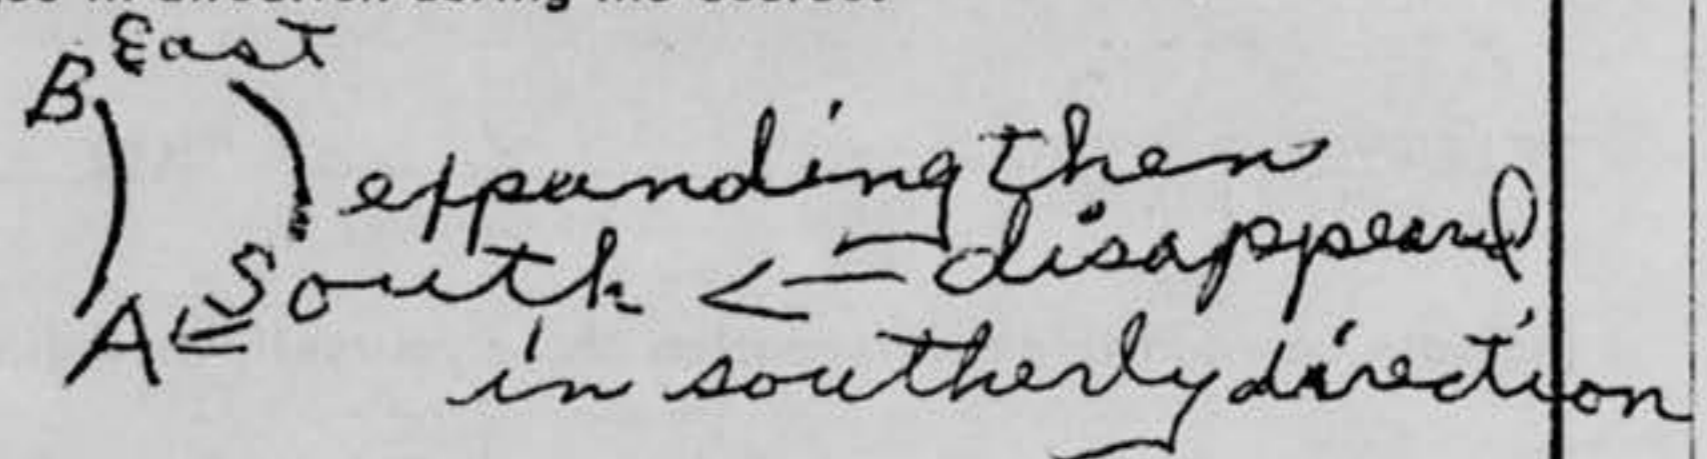 East
B
expanding then
South ← disappeared
A ←
in southerly direction